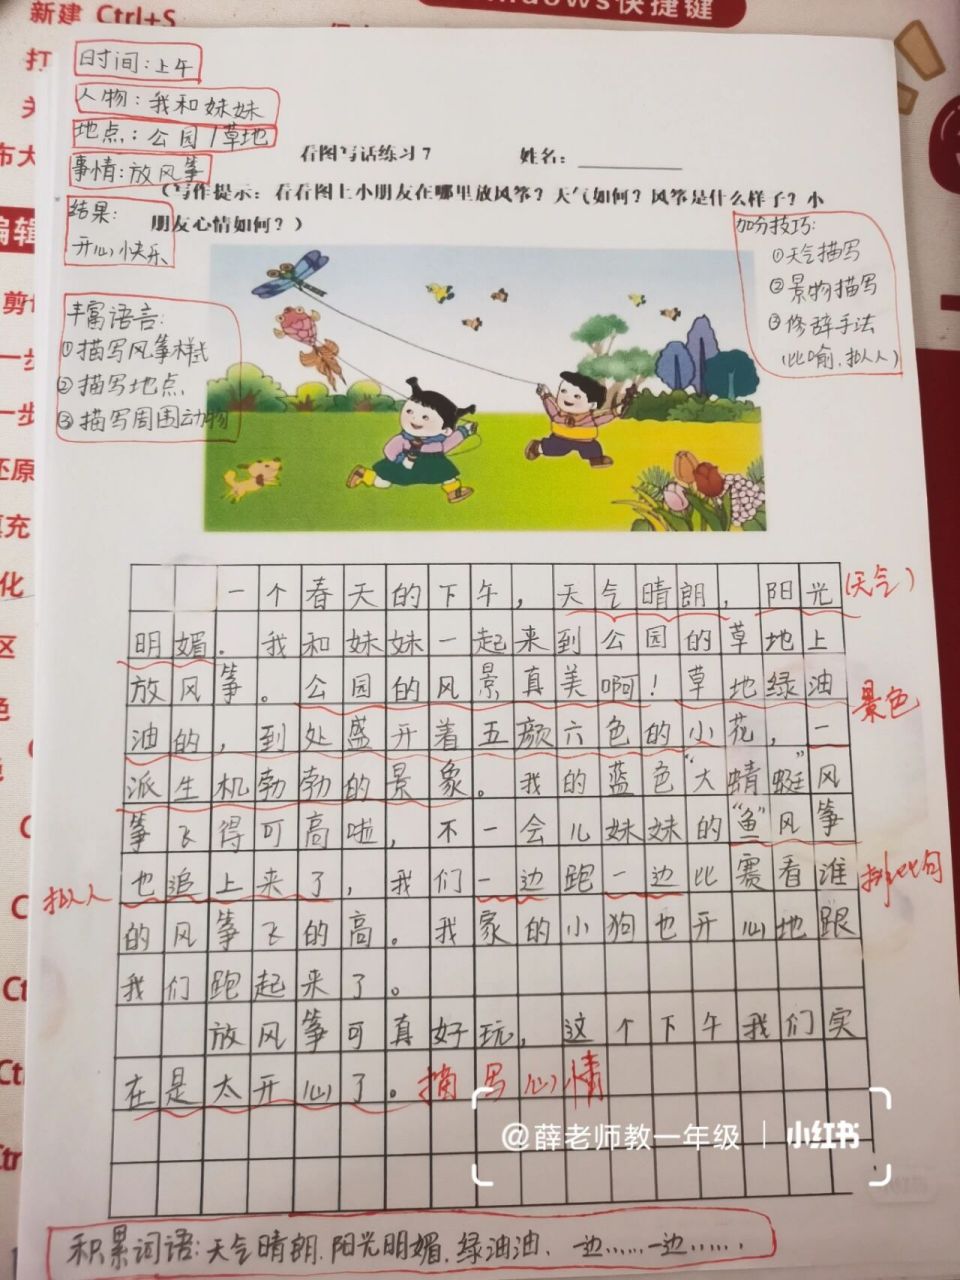 新建 Ctrl+S
Windows快捷键
日时间：上午
人物：我和妹妹
地点：公园/草地
事情：放风筝
结果：
开心快乐
看图写话练习7 姓名：
（写作提示：看看图上小朋友在哪里放风筝？天气如何？风筝是什么样子？小
朋友心情如何？）
加分技巧：
①天气描写
②景物描写
③修辞手法
（比喻、拟人）
丰富语言：
①描写风筝样式
②描写地点
③描写周围动物
一个春天的下午，天气晴朗，阳光
（天气）
明媚。我和妹妹一起来到公园的草地上
放风筝。公园的风景真美啊！草地绿油
景色
油的，到处盛开着五颜六色的小花，一
派生机勃勃的景象。我的蓝色“大蜻蜓”风
筝飞得可高啦，不一会儿妹妹的“鱼”风筝
拟人
也追上来了，我们一边跑一边比赛看谁
排比句
的风筝飞的高。我家的小狗也开心地跟
我们跑起来了。
放风筝可真好玩，这个下午我们实
在是太开心了。描写心情
@薛老师教一年级 | 小红书
积累词语：天气晴朗、阳光明媚、绿油油、一边……一边……、
打
关
布大
编辑
剪
一步
一步
还原
填充
化
区
色
Ctr